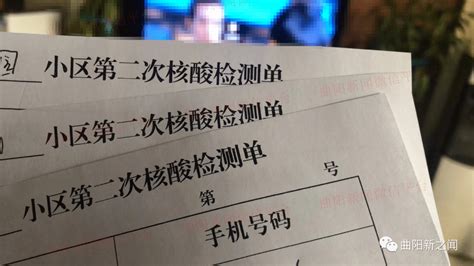 小区第二次核酸检测单
小区第二次核酸检测单
小区第二次核酸检测单
第 号
手机号码
曲阳新之闻